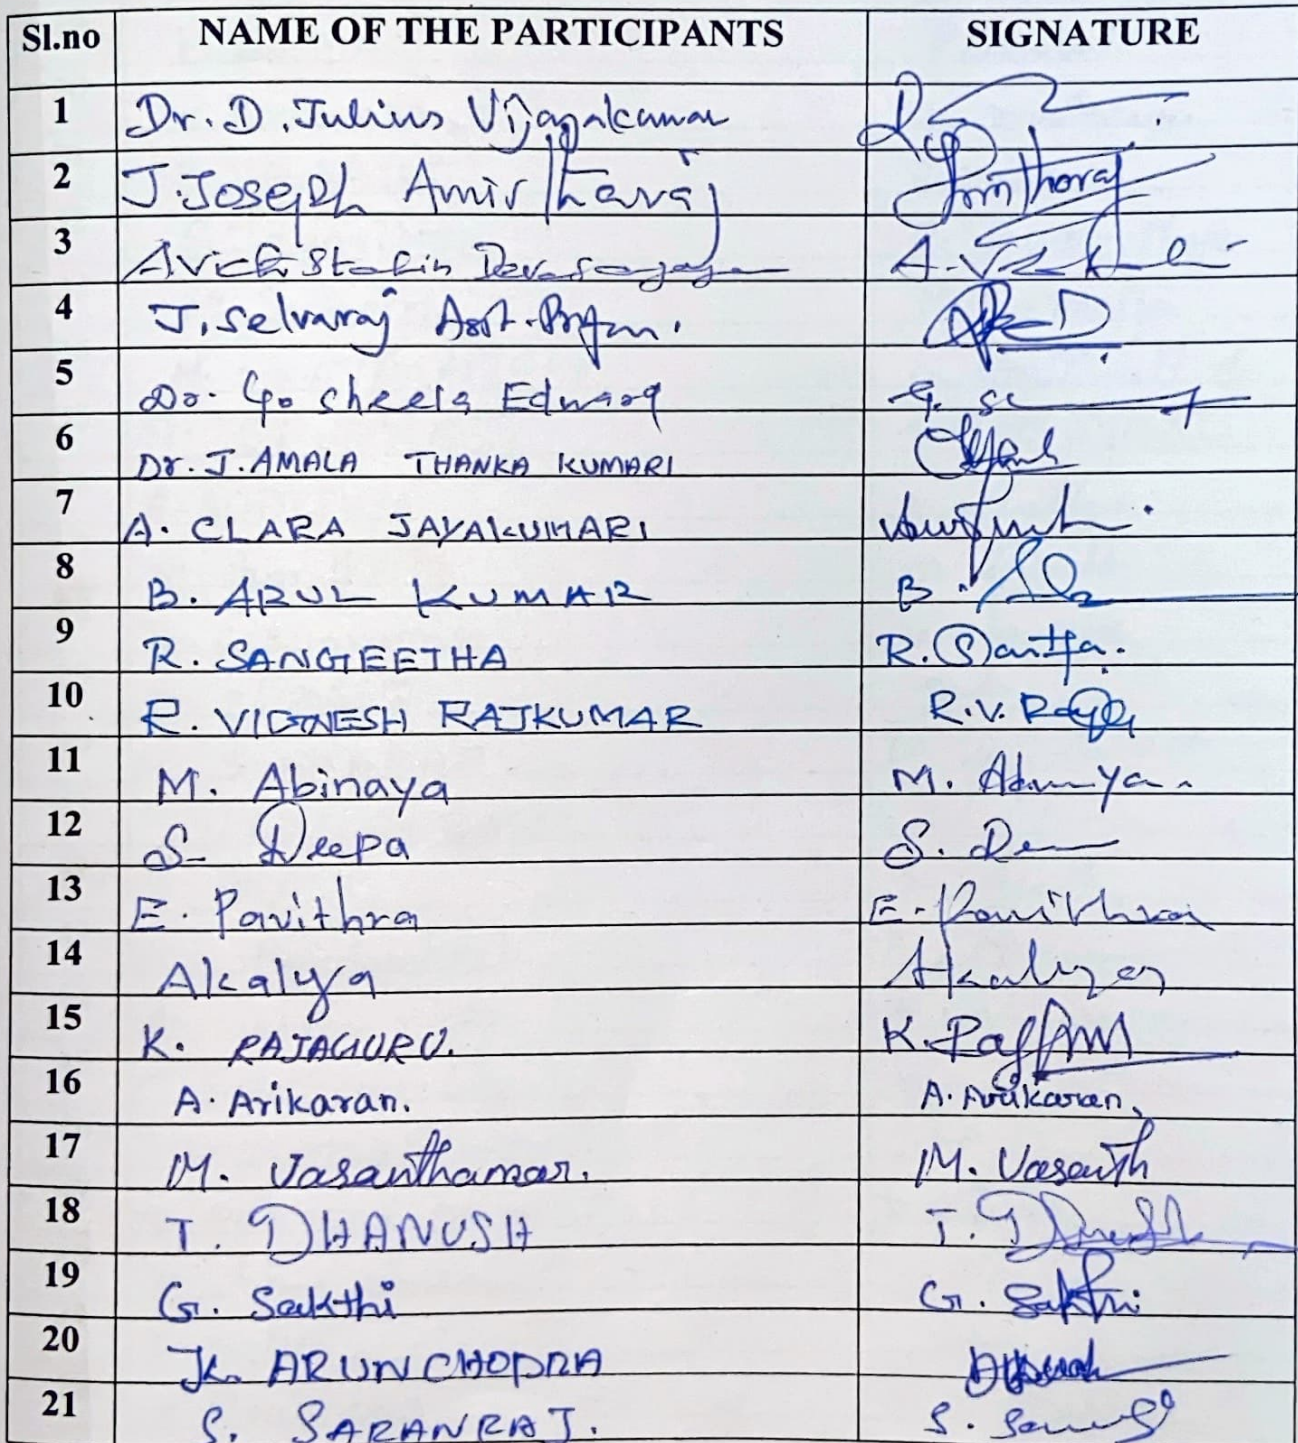 Sl.no NAME OF THE PARTICIPANTS SIGNATURE
1 Dr. D. Julius Vijayakumar
2 J. Joseph Amirtharaj Amirtharaj
3 Stalin A.
4 J. Selvaraj Asst.
5 Dr. G. Sheela Edward G.
6 Dr. J. AMALA THANKA KUMARI
7 A. CLARA JAYAKUMARI
8 B. ARUL KUMAR B.
9 R. SANGEETHA R.
10 R. VIGNESH RAJKUMAR R.V.
11 M. Abinaya M. Abinaya
12 S. Deepa S.
13 E. Pavithra E. Pavithra
14 Akalya Akalya
15 K. RAJAGURU. K.
16 A. Arikaran. A. Arikaran,
17 M. Vasanthamar. M. Vasanth
18 T. DHANUSH T.
19 G. Sakthi G. Sakthi
20 K. ARUN CHOPRA
21 S. SARANRAJ. S.